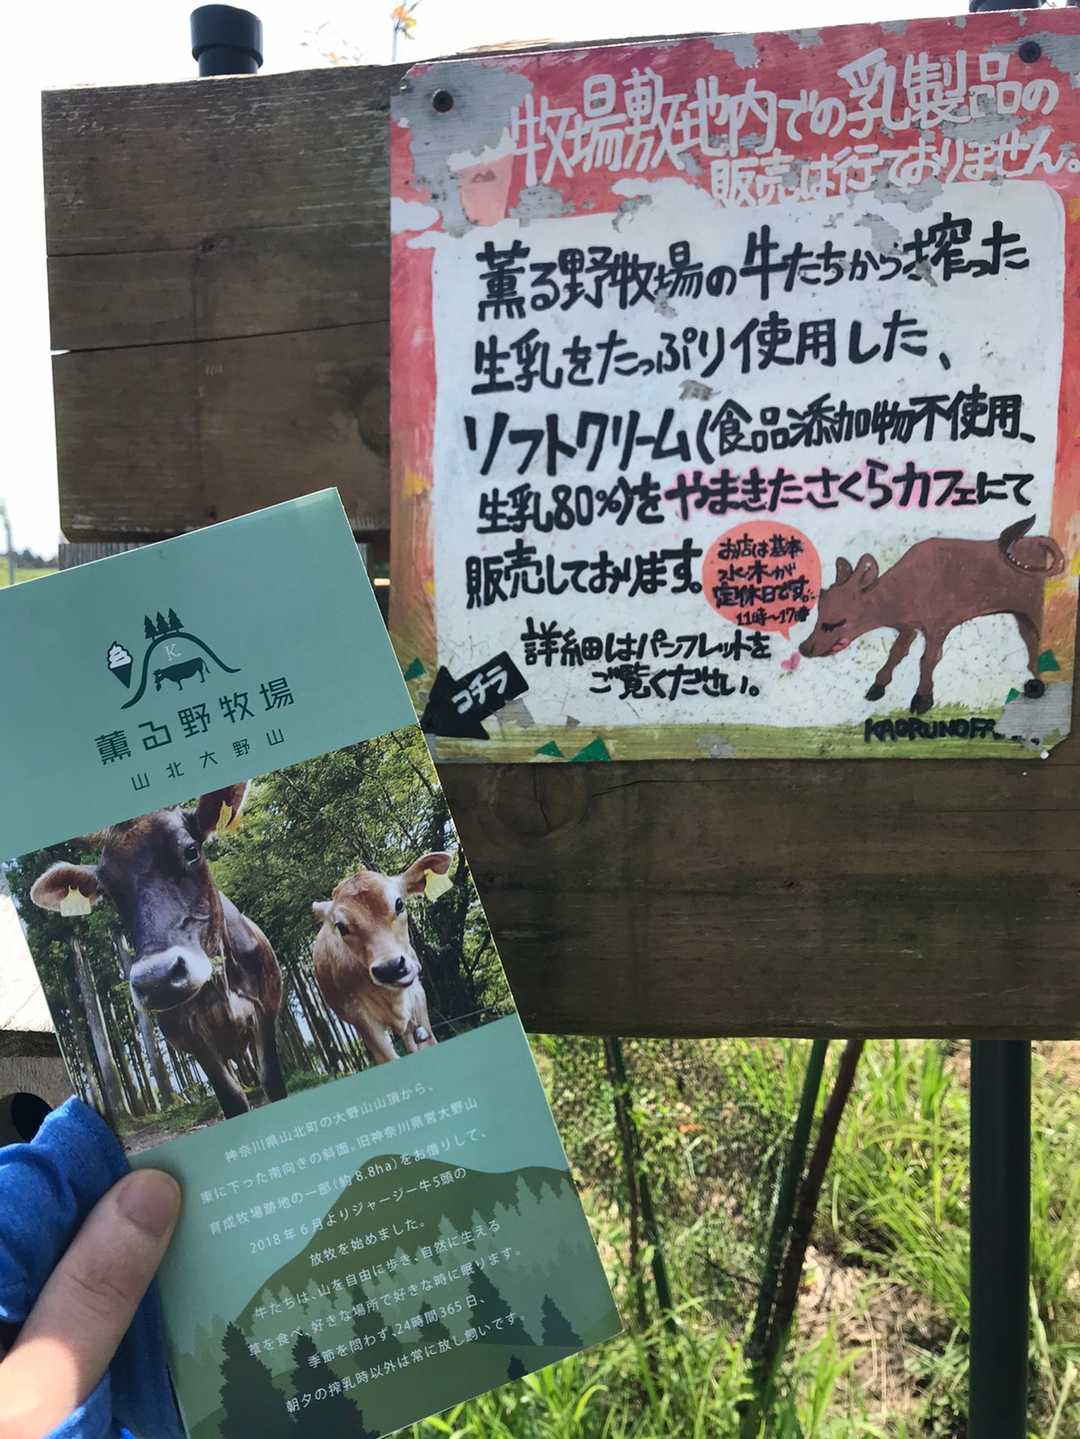 牧場敷地内での乳製品の
販売は行ておりません。
薫る野牧場の牛たちから搾った
生乳をたっぷり使用した、
ソフトクリーム(食品添加物不使用、
生乳80%)を やまきたさくらカフェにて
販売しております。
お店は基本
水・木が
定休日です。
11時〜17時
詳細はパンフレットを
ご覧ください。
コチラ
K
薫る野牧場
山北大野山
神奈川県山北町の大野山山頂から、
東に下った南向きの斜面。旧神奈川県営大野山
育成牧場跡地の一部(約8.8ha)をお借りして、
2018年6月よりジャージー牛5頭の
放牧を始めました。
牛たちは、山を自由に歩き、自然に生える
草を食べ、好きな場所で好きな時に眠ります。
季節を問わず、24時間365日、
朝夕の搾乳時以外は常に放し飼いです。